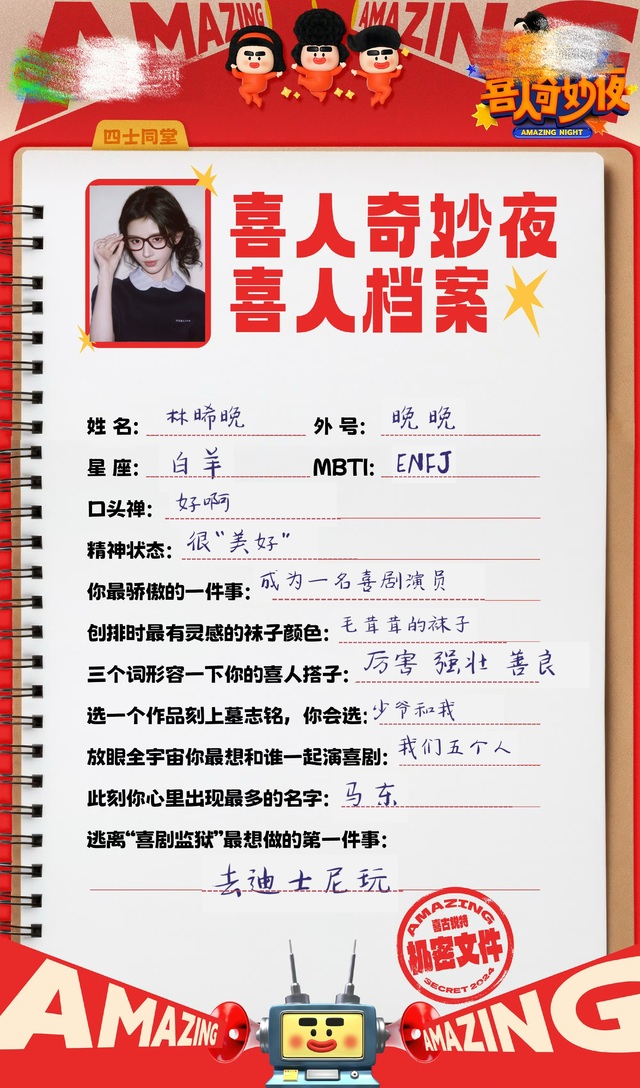 AMAZING AMAZING
喜人奇妙夜
AMAZING NIGHT
四士同堂
喜人奇妙夜
喜人档案
姓名: 林晞晚 外号: 晚晚
星座: 白羊 MBTI: ENFJ
口头禅: 好啊
精神状态: 很"美好"
你最骄傲的一件事: 成为一名喜剧演员
创排时最有灵感的袜子颜色: 毛茸茸的袜子
三个词形容一下你的喜人搭子: 厉害 强壮 善良
选一个作品刻上墓志铭，你会选: 少爷和我
放眼全宇宙你最想和谁一起演喜剧: 我们五个人
此刻你心里出现最多的名字: 马东
逃离“喜剧监狱”最想做的第一件事:
去迪士尼玩
AMAZING
喜古悦特
机密文件
SECRET 2024
AMAZING AMAZING